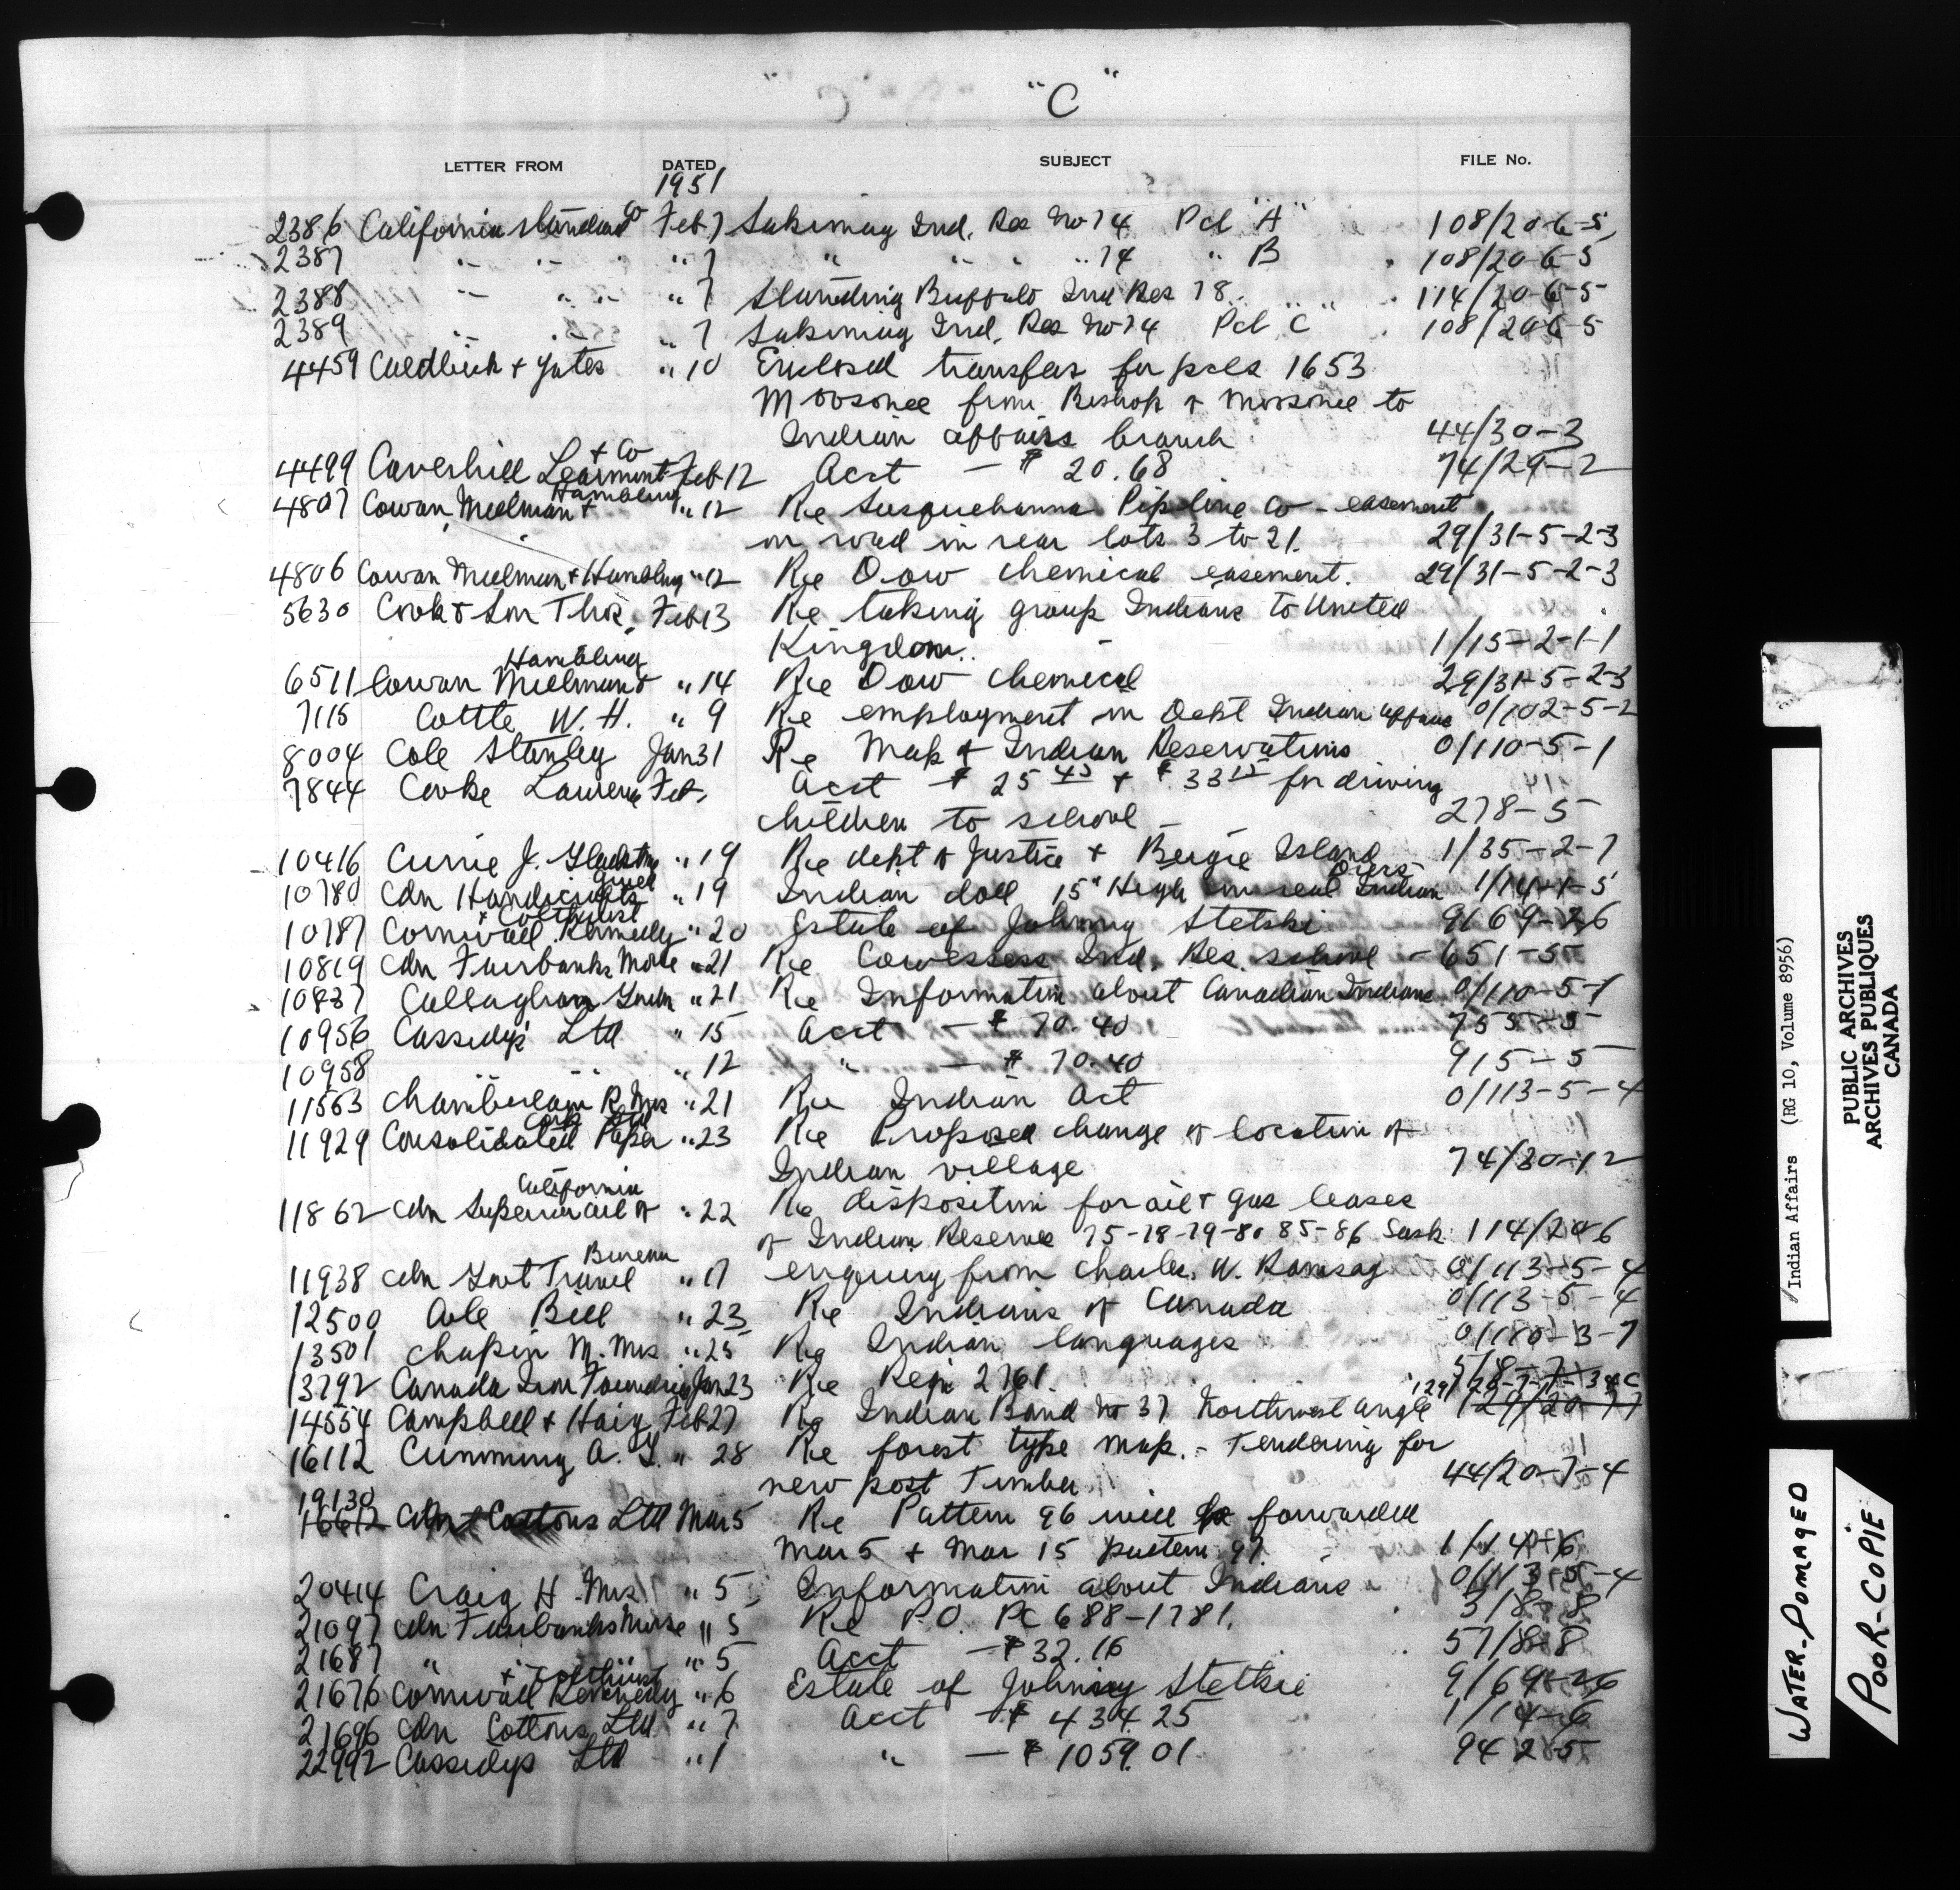 "C"
LETTER FROM DATED SUBJECT FILE No.
1951
2386 California Standard Co Feb 7 Sakimay Ind. Res No 74 Pcl "A" 108/20-6-5
2387 " " " " 7 " " " " 74 " B 108/20-6-5
2388 " " " " 7 Standing Buffalo Ind Res 78 " " 114/20-6-5
2389 " " " 7 Sakimay Ind. Res No 74 Pcl "C" 108/20-6-5
4459 Caldbick & Yates " 10 Enclosed transfers for pcls 1653
Moosonee from Bishop of Moosonee to
Indian affairs branch 44/30-3
4499 Caverhill Learmont & Co Feb 12 Acct — $ 20.68 74/29-2
4807 Cowan Millman & Hambling " 12 Re Susquehanna Pipline Co - easement
on road in rear lots 3 to 21. 29/31-5-2-3
4806 Cowan Millman & Hambling " 12 Re Dow Chemical easement. 29/31-5-2-3
5630 Cook & Son Thos. Feb 13 Re taking group Indians to United
Kingdom. 1/15-2-1-1
6511 Cowan Millman & Hambling " 14 Re Dow Chemical 29/31-5-2-3
7115 Cottle W. H. " 9 Re employment in Dept Indian affairs 0/102-5-2
8004 Cole Stanley Jan 31 Re Map of Indian Reservations 0/110-5-1
7844 Cooke Lawrence Feb, Acct $ 25 45 + $ 33 15 for driving
children to school - 278-5
10416 Currie J. Gladstone " 19 Re dept of Justice + Island 1/35-2-7
10780 Cdn Handicrafts Guild " 19 Indian doll 15" High Indian 1/14-1-5
10787 Cornwall Kennedy & Colthurst " 20 Estate of Johnny Stetski 9/69-26
10819 Cdn Fairbanks Morse " 21 Re Cowessess Ind. Res. school - 651-5
10837 Callaghan " 21 Re Information about Canadian Indians 0/110-5-1
10956 Cassidy's Ltd " 15 Acct — $ 70.40 755-5
10958 " " " 12 " — $ 70.40 915-5
11563 Chamberlain R. Mrs " 21 Re Indian Act 0/113-5-4
11929 Consolidated Paper Corp Ltd " 23 Re Proposed change of location of
Indian village 74/30-12
11862 Cdn Superior Oil of California " 22 Re disposition for oil & gas leases
of Indian Reserves 75-78-79-80 85-86 Sask. 114/20-6
11938 Cdn Govt Travel Bureau " 17 enquiry from Charles. W. Ramsay 0/113-5-4
12500 Cole Bill " 23 Re Indians of Canada 0/113-5-4
13501 Chapin M. Mrs " 25 Re Indian languages 0/180-3-7
13792 Canada Iron Foundries Jan 23 Re Reqn 2761. 5/8-7-
14554 Campbell & Haig Feb 27 Re Indian Band No 37 Northwest angle 129/
16112 Cumming A. G. " 28 Re forest type map. - Tendering for
new post Timber 44/20-7-4
19130
16612 Cdn Cottons Ltd Mar 5 Re Pattern 96 will be forwarded
Mar 5 & Mar 15 pattern 97. 1/14-6
20414 Craig H. Mrs " 5 Information about Indians 0/113-5-4
21097 Cdn Fairbanks Morse " 5 Re P.O. PC 688-1781. 3/8-8
21687 " " 5 Acct — $ 32.16 57/8-8
21676 Cornwall Kennedy & Colthurst " 6 Estate of Johnny Stetkie 9/69-26
21696 Cdn Cottons Ltd " 7 Acct — $ 434.25 1/14-6
22992 Cassidys Ltd " 1 " — $ 1059.01 942-5
Indian Affairs (RG 10, Volume 8956)
PUBLIC ARCHIVES
ARCHIVES PUBLIQUES
CANADA
WATER-DOMAGED
POOR-COPIE